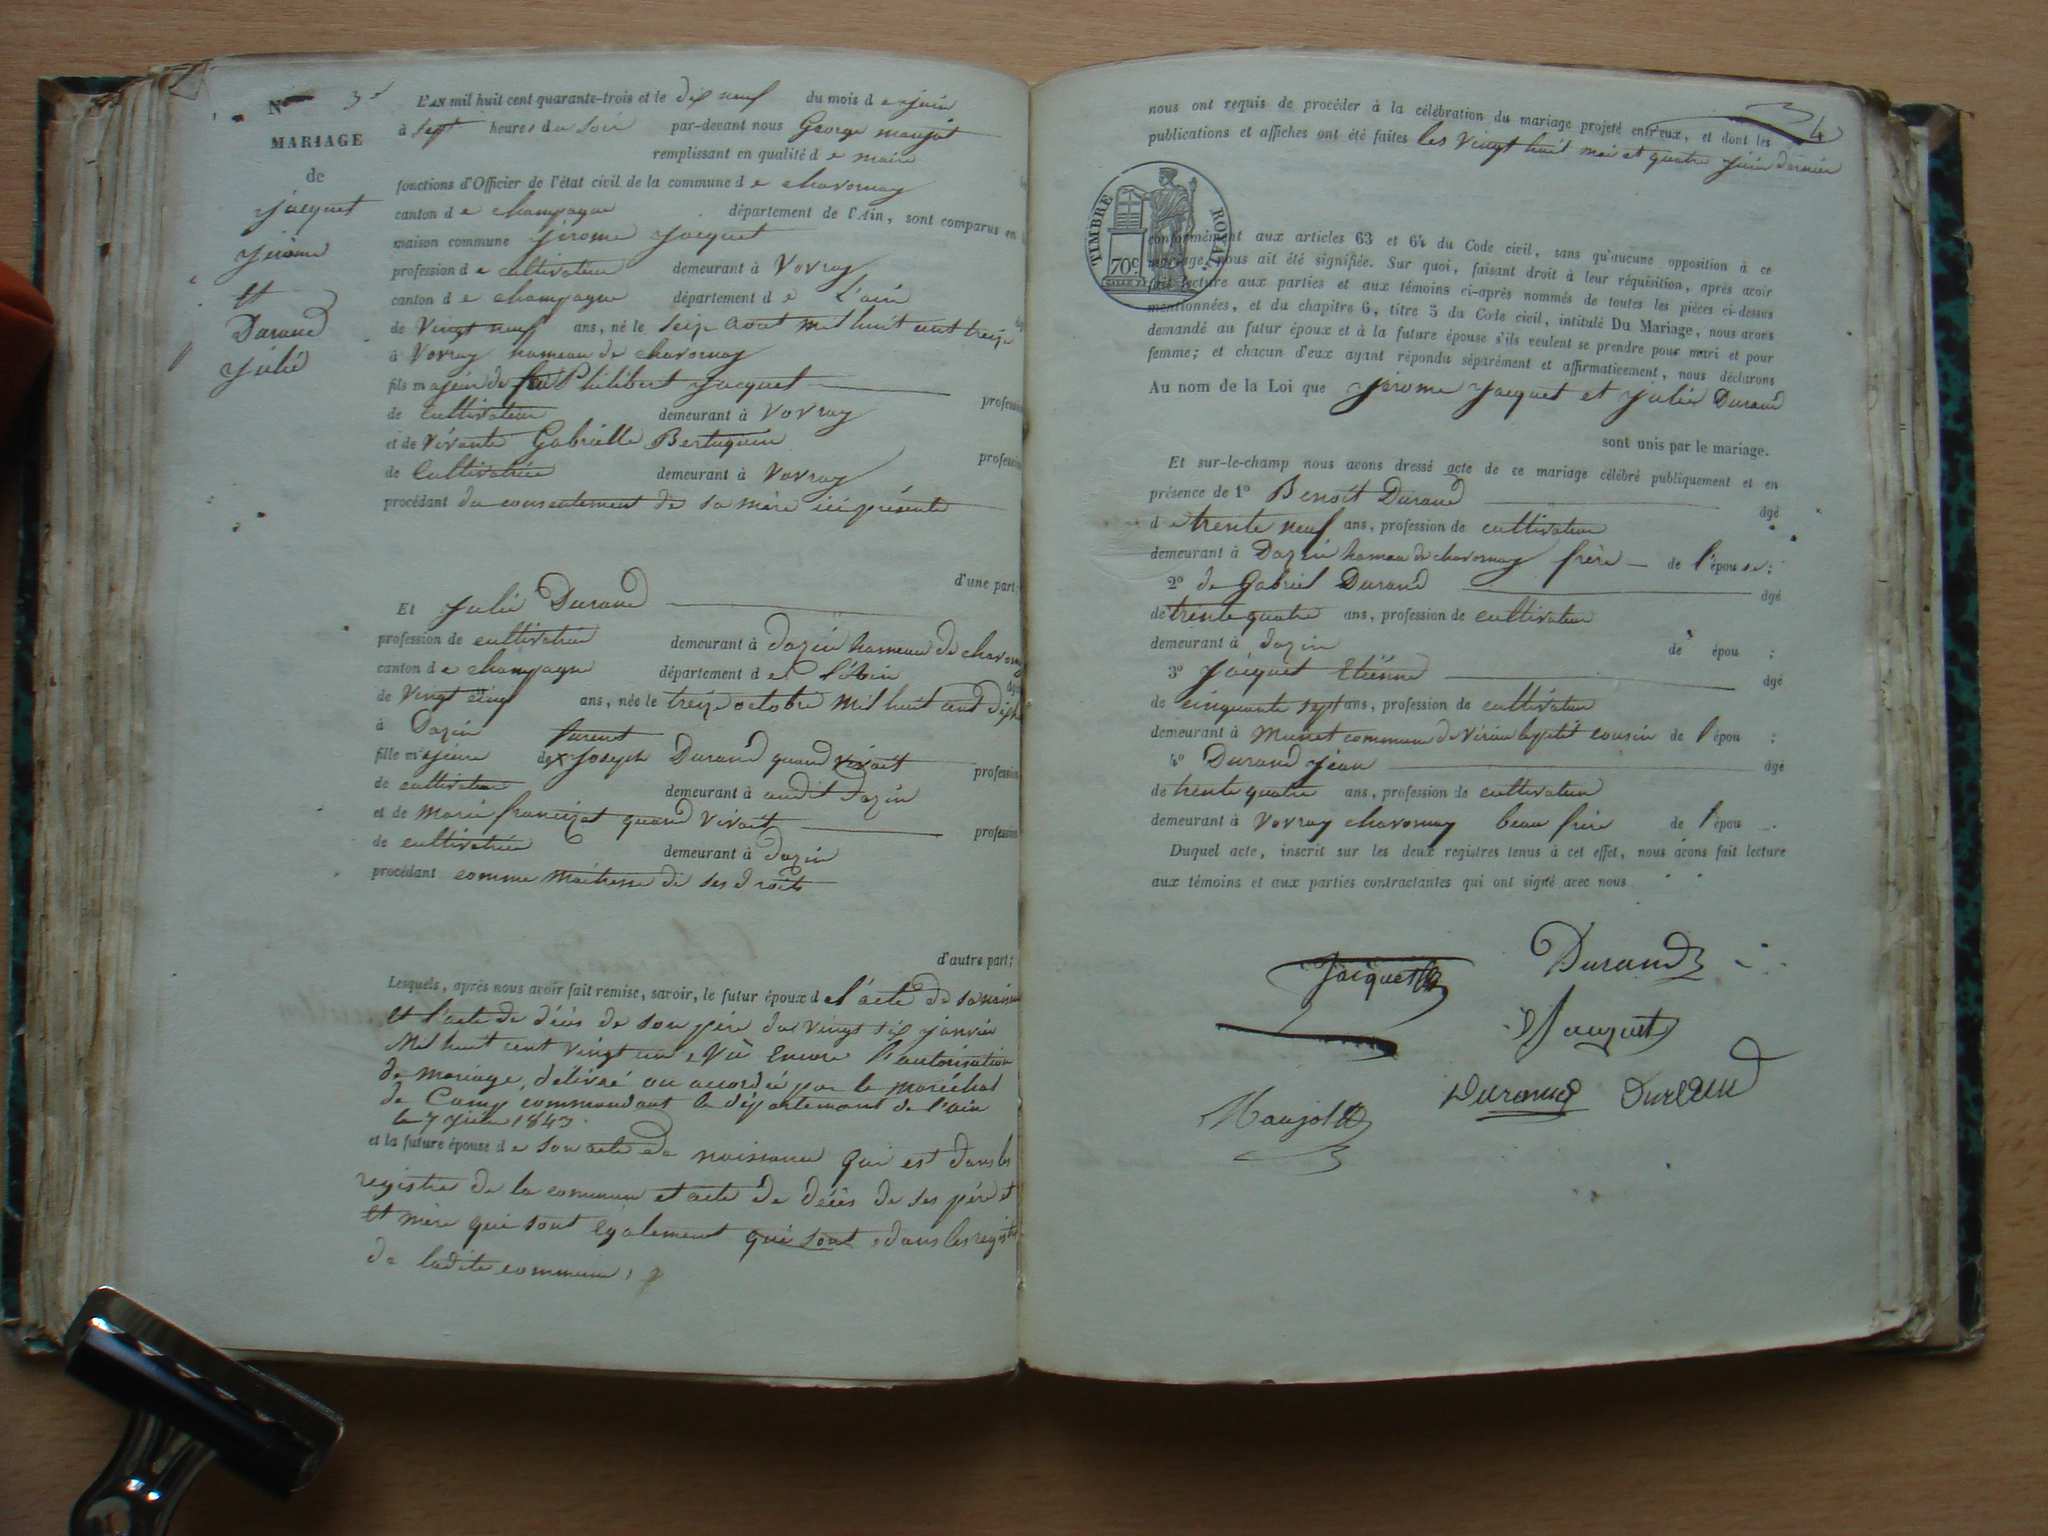 N° 3e
MARIAGE
de
Jacquet
Jérome
et
Durand
Julie
L'AN mil huit cent quarante-trois et le dix neuf du mois de juin
à sept heures du soir par-devant nous George maujot
remplissant en qualité de maire
fonctions d'Officier de l'état civil de la commune de chavornay
canton de champagne département de l'Ain, sont comparus en
maison commune Jérome Jacquet
profession de cultivateur demeurant à Vovray
canton de champagne département de L'ain
de Vingt neuf ans, né le seize aout mil huit cent treize
à Vovray hameau de chavornay
fils majeur de feu Philibert Jacquet profession
de cultivateur demeurant à Vovray
et de vivante Gabrielle Bertuquin profession
de Cultivatrice demeurant à Vovray
procédant du consentement de sa mère ici présente
d'une part;
Et Julie Durand
profession de cultivatrice demeurant à dazin hameau de chavornay
canton de champagne département de l'Ain
de Vingt cinq ans, née le treize octobre mil huit cent dix
à Dazin
furent
fille majeure de Joseph Durand quand vivait profession
de cultivateur demeurant à audit dazin
et de Marie francizat quand vivait profession
de cultivatrice demeurant à dazin
procédant comme maitresse de ses droits
d'autre part;
Lesquels, après nous avoir fait remise, savoir, le futur époux de l'acte de sa
et l'acte de décès de son père du vingt six janvier
Mil huit cent vingt un, Vu Encore l'autorisation
de mariage, délivré ou accordée par le maréchal
de Camp commandant le département de l'ain
le 7 juin 1843.
et la future épouse de son acte de naissance qui est dans les
registre de la commune et acte de décès de ses père et
et mère qui sont également qui sont dans les registre
de ladite commune,
4
nous ont requis de procéder à la célébration du mariage projeté entr'eux, et dont les
publications et affiches ont été faites les vingt huit mai et quatre juin dernier
TIMBRE ROYAL
70c
conformément aux articles 63 et 64 du Code civil, sans qu'aucune opposition à ce
mariage nous ait été signifiée. Sur quoi, faisant droit à leur réquisition, après avoir
fait lecture aux parties et aux témoins ci-après nommés de toutes les pièces ci-dessus
mentionnées, et du chapitre 6, titre 5 du Code civil, intitulé Du Mariage, nous avons
demandé au futur époux et à la future épouse s'ils veulent se prendre pour mari et pour
femme; et chacun d'eux ayant répondu séparément et affirmativement, nous déclarons
Au nom de la Loi que Jérome Jacquet et Julie Durand
sont unis par le mariage.
Et sur-le-champ nous avons dressé acte de ce mariage célébré publiquement et en
présence de 1° Benoit Durand âgé
de trente neuf ans, profession de cultivateur
demeurant à Dazin hameau de chavornay frère de l'épouse;
2° de Gabriel Durand âgé
de trente quatre ans, profession de cultivateur
demeurant à dazin de épou ;
3° Jacquet Etienne âgé
de cinquante sept ans, profession de cultivateur
demeurant à Munet commune de Virieu le petit cousin de l'épou ;
4° Durand Jean âgé
de trente quatre ans, profession de cultivateur
demeurant à Vovray chavornay beau frère de l'épou
Duquel acte, inscrit sur les deux registres tenus à cet effet, nous avons fait lecture
aux témoins et aux parties contractantes qui ont signé avec nous
Jacquet Durand
Jacquet
Maujot Durand Durand